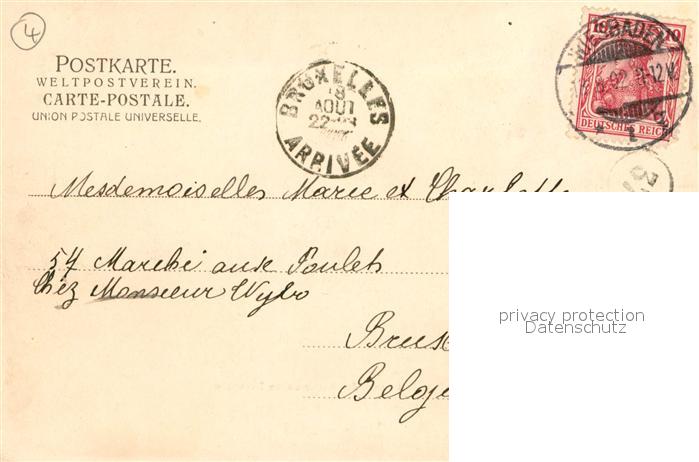 4
POSTKARTE.
WELTPOSTVEREIN.
CARTE-POSTALE.
UNION POSTALE UNIVERSELLE.
BRUXELLES
8
AOUT
22-23
ARRIVÉE
10 10
WIESBADEN
DEUTSCHES REICH
1
37
Mesdemoiselles Marie et Charlotte
57 Marché aux Poulets
Chez Monsieur Wybo
Brux
Belgi
privacy protection
Datenschutz